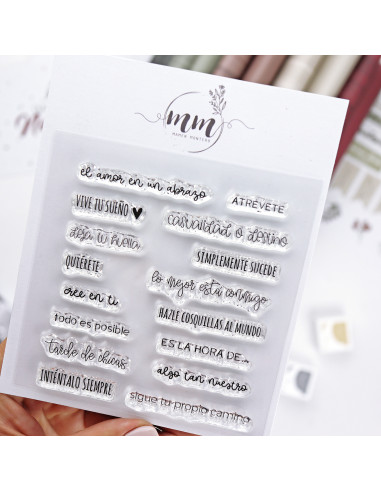 mm
el amor en un abrazo
VIVE TU SUEÑO
deja tu huella
QUIÉRETE
cree en ti
todo es posible
tarde de chicas
INTÉNTALO SIEMPRE
ATRÉVETE
casualidad o destino
SIMPLEMENTE SUCEDE
lo mejor está conmigo
HAZLE COSQUILLAS AL MUNDO
ES LA HORA DE...
algo tan nuestro
sigue tu propio camino